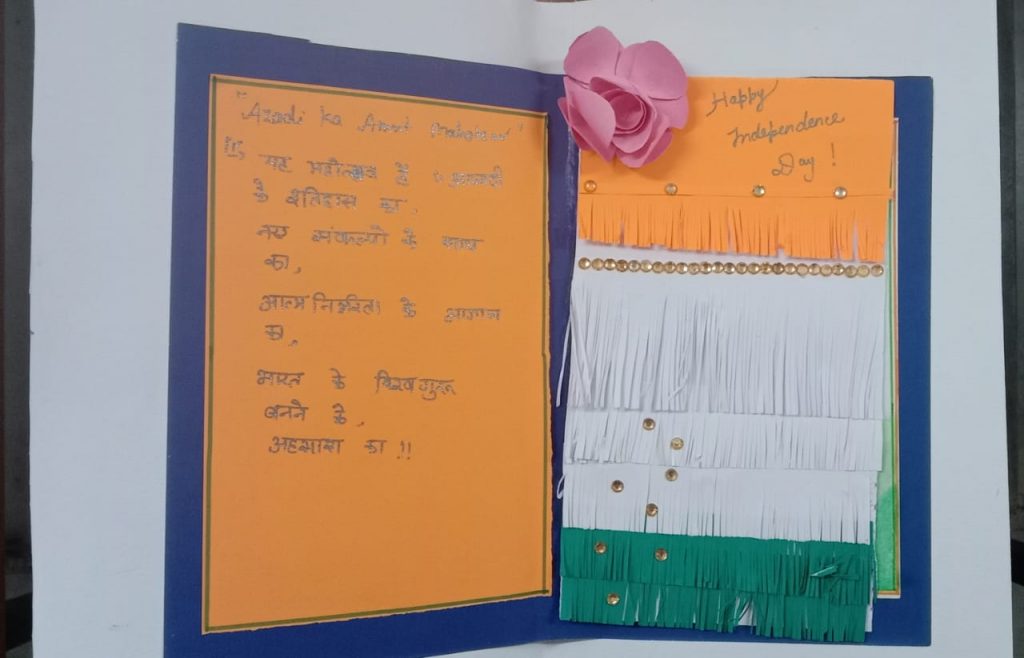 "Azadi ka Amrit Mahotsav"
!!, यह महोत्सव है, आजादी
के इतिहास का,
नए संकल्पों के साथ
का,
आत्मनिर्भरता के आगाज
का,
भारत के विश्वगुरू
बनने के,
अहसास का !!
Happy
Independence
Day !